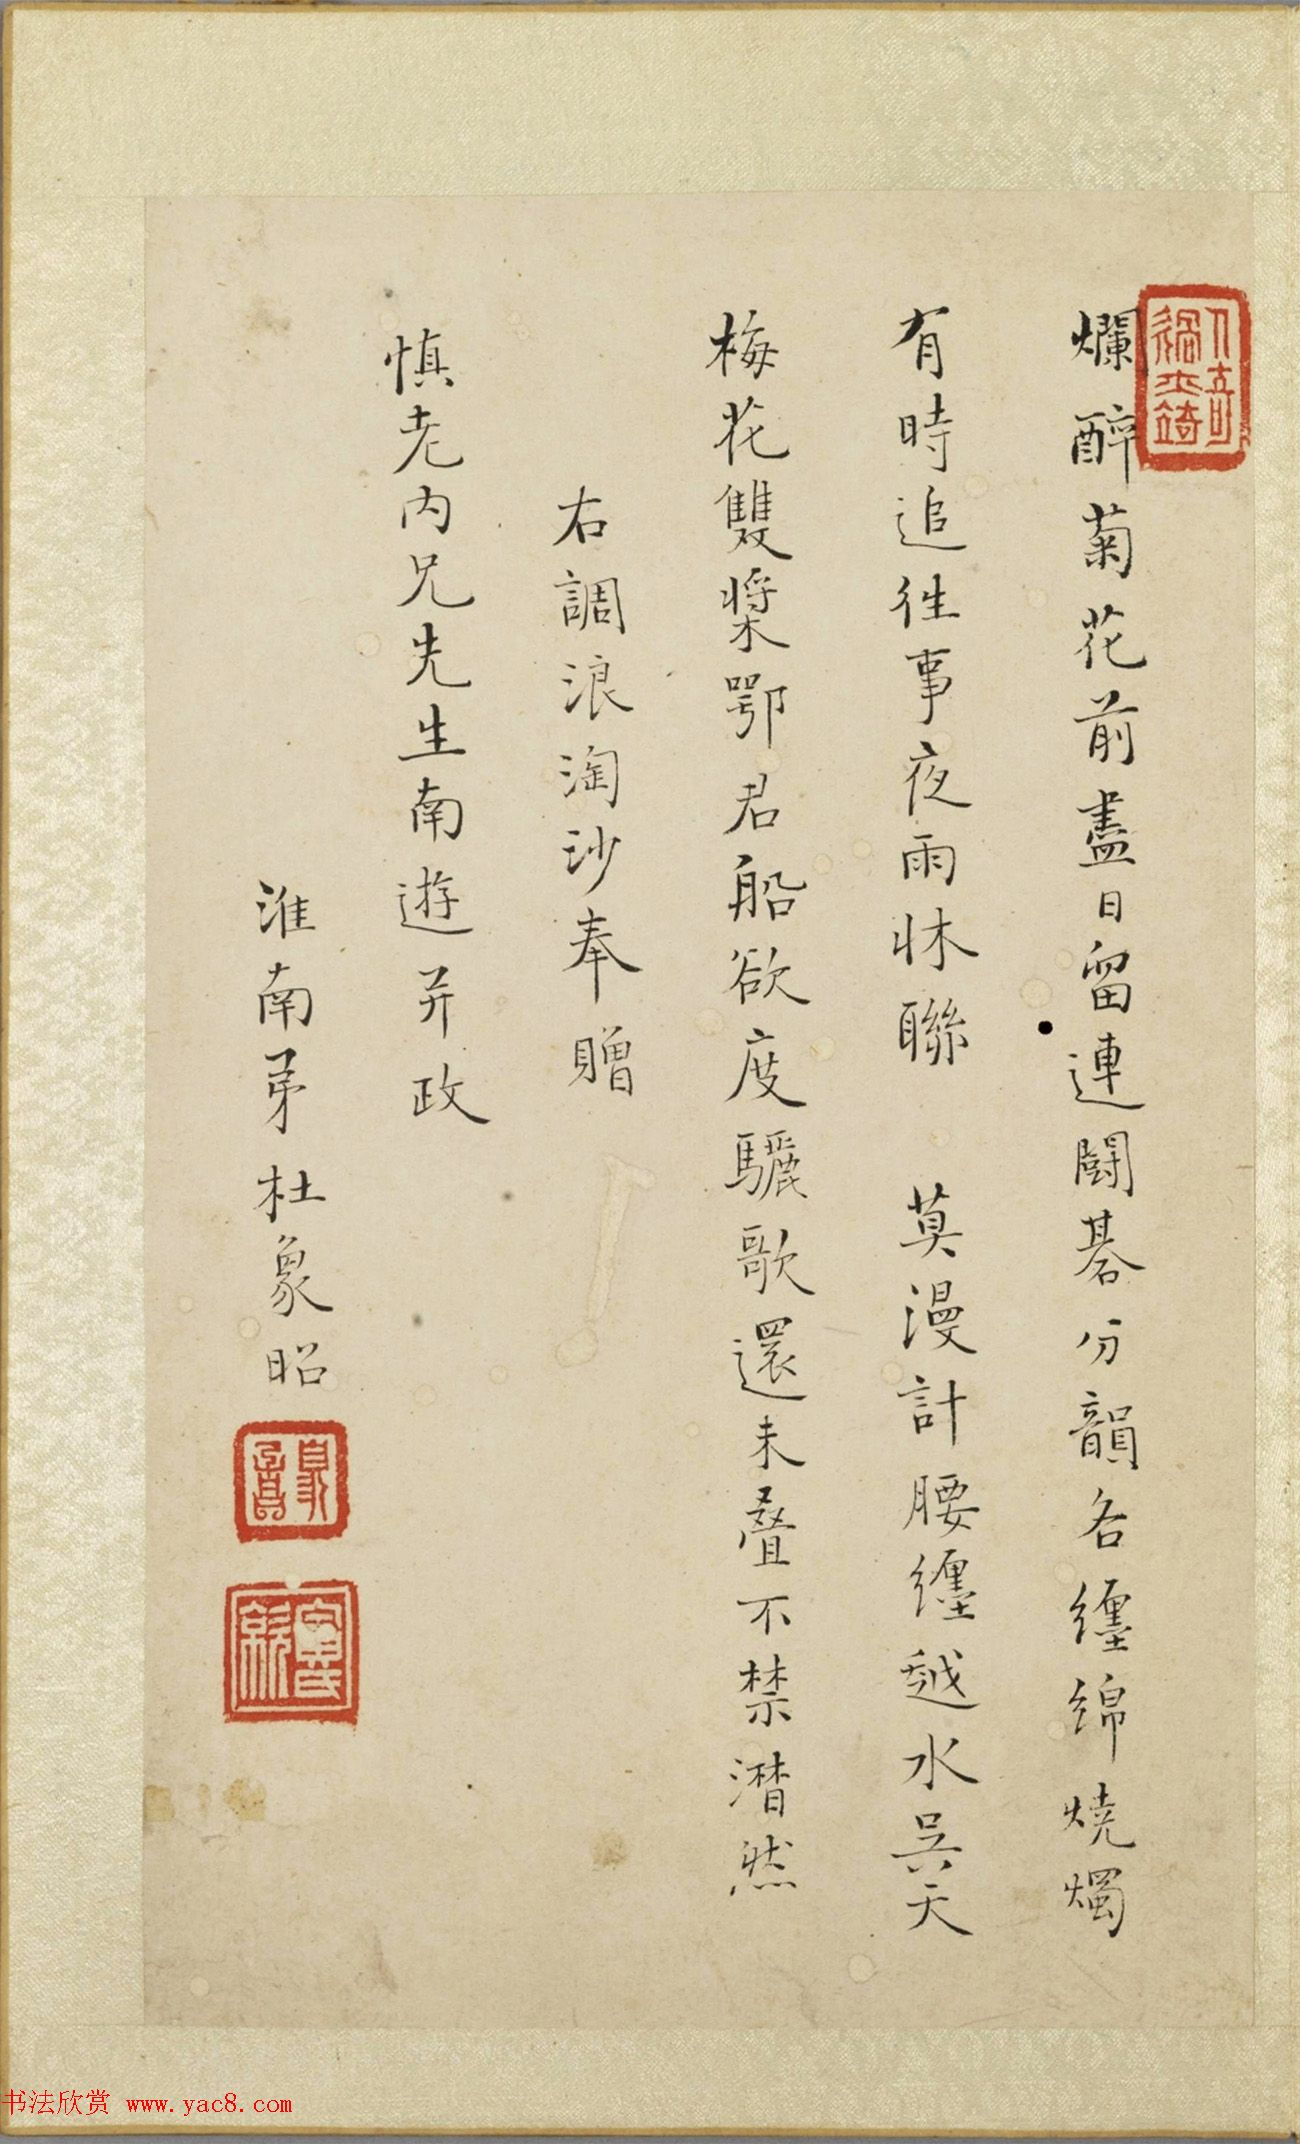 爛醉菊花前盡日留連鬪碁分韻各纏綿燒燭
有時追往事夜雨牀聯　莫漫計腰纏越水吳天
梅花雙槳鄂君船欲度驪歌還未疊不禁潸然
右調浪淘沙奉贈
慎老内兄先生南遊并政
淮南弟杜象昭
书法欣赏 www.yac8.com